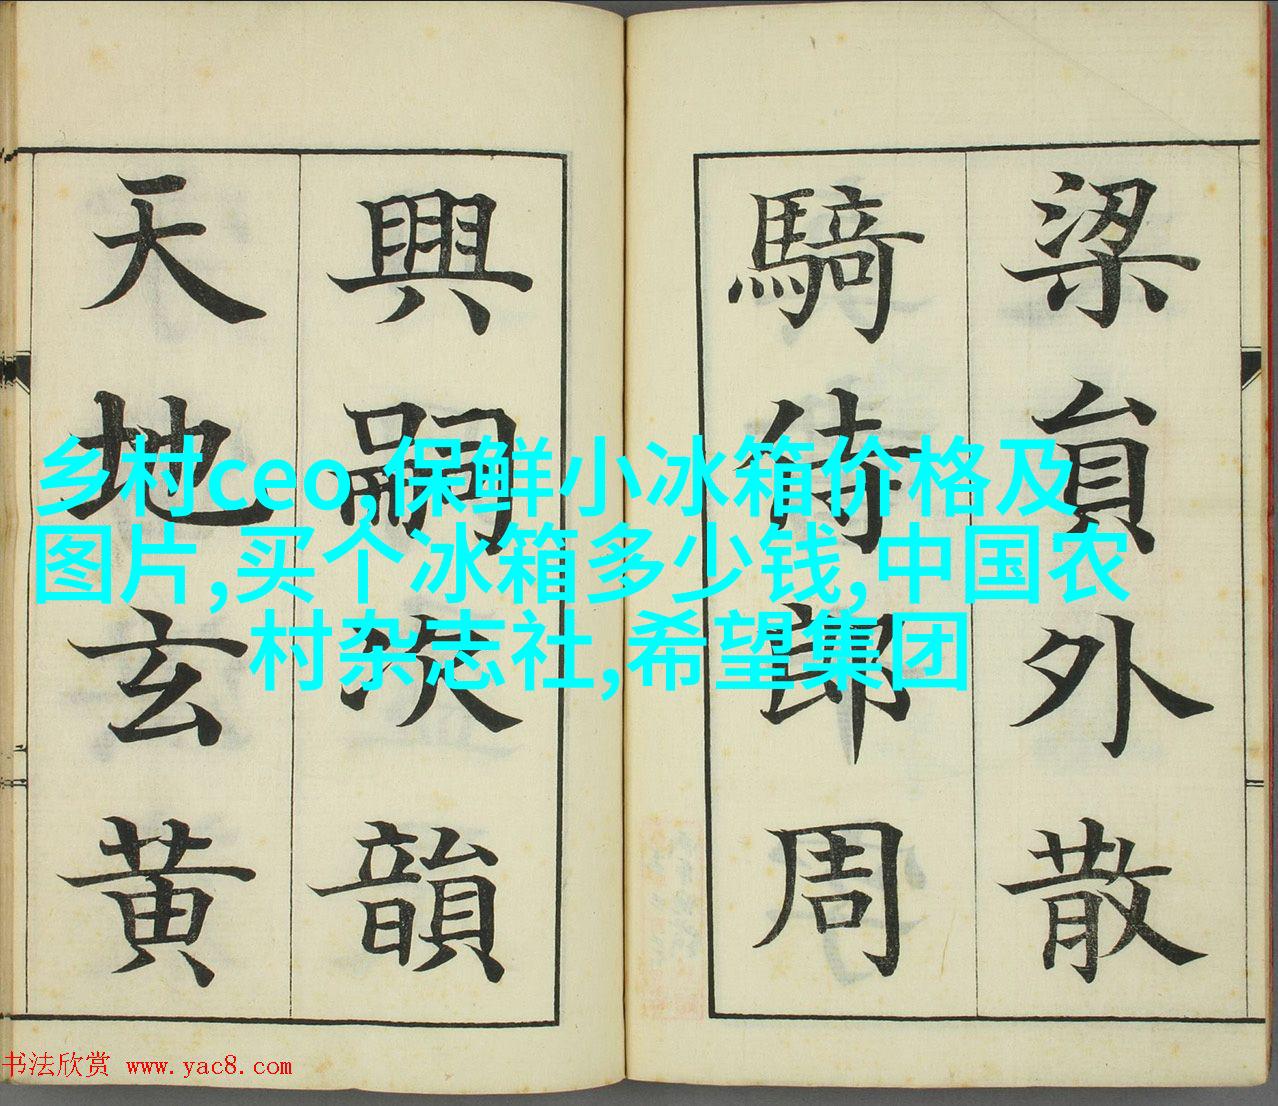 梁貟外散
騎侍郎周
興嗣次韻
天地玄黄
乡村ceo,保鲜小冰箱价格及
图片,买个冰箱多少钱,中国农
村杂志社,希望集团
书法欣赏 www.yac8.com